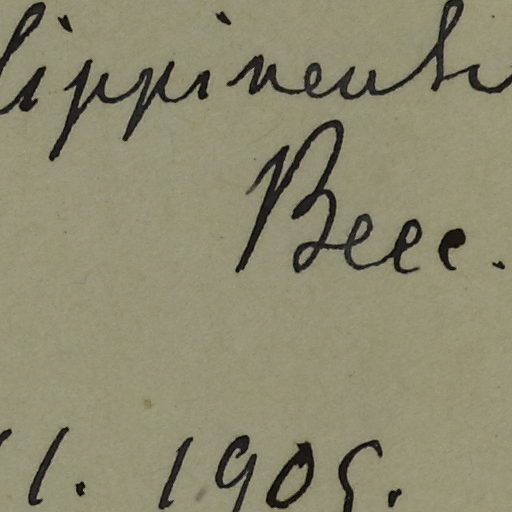 lippinensi
Becc.
11. 1905.